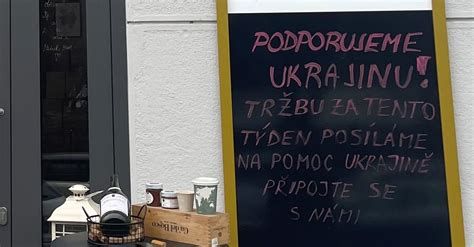 PODPORUJEME
UKRAJINU!
TRŽBU ZA TENTO
TÝDEN POSÍLÁME
NA POMOC UKRAJINĚ
PŘIPOJTE SE
S NÁMI